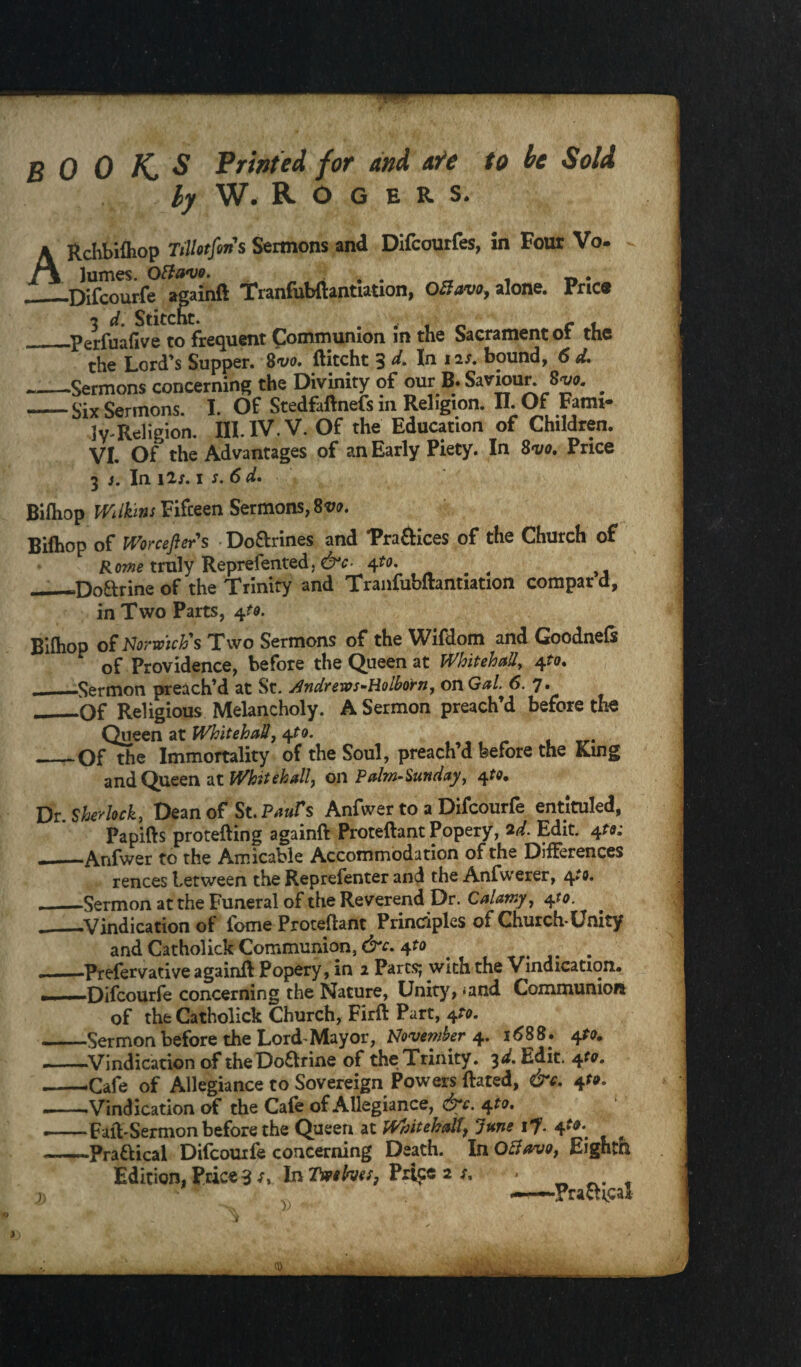 BOOKS Printed for and are to be Sold
by W. ROGERS.
ARchbiſhop Tillotſon's Sermons and Diſcourſes, in Four Vo-
lumes. Octavo.
——Diſcourſe againſt Tranſubſtantiation, Octavo, alone. Price
3 d. Stitcht.
——Perſuaſive to frequent Communion in the Sacrament of the
the Lord's Supper. 8vo. ſtitcht 3 d. In 12s. bound, 6 d.
——Sermons concerning the Divinity of our B. Saviour. 8vo.
——Six Sermons. I. Of Stedfaſtneſs in Religion. II. Of Fami-
ly-Religion. III. IV. V. Of the Education of Children.
VI. Of the Advantages of an Early Piety. In 8vo. Price
3 s. In 12s. 1 s. 6 d.
Biſhop Wilkins Fifteen Sermons, 8vo.
Biſhop of Worceſter's Doctrines and Practices of the Church of
Rome truly Repreſented, &c. 4to.
——Doctrine of the Trinity and Tranſubſtantiation compar'd,
in Two Parts, 4to.
Biſhop of Norwich's Two Sermons of the Wiſdom and Goodneſs
of Providence, before the Queen at Whitehall, 4to.
——Sermon preach'd at St. Andrews-Holborn, on Gal. 6. 7.
——Of Religious Melancholy. A Sermon preach'd before the
Queen at Whitehall, 4to.
——Of the Immortality of the Soul, preach'd before the King
and Queen at Whitehall, on Palm-Sunday, 4to.
Dr. Sherlock, Dean of St. Paul's Anſwer to a Diſcourſe entituled,
Papiſts proteſting againſt Proteſtant Popery, 2d. Edit. 4to:
——Anſwer to the Amicable Accommodation of the Differences
rences between the Repreſenter and the Anſwerer, 4to.
——Sermon at the Funeral of the Reverend Dr. Calamy, 4to.
——Vindication of ſome Proteſtant Principles of Church-Unity
and Catholick Communion, &c. 4to
——Preſervative againſt Popery, in 2 Parts; with the Vindication.
——Diſcourſe concerning the Nature, Unity, and Communion
of the Catholick Church, Firſt Part, 4to.
——Sermon before the Lord-Mayor, November 4. 1688. 4to.
——Vindication of the Doctrine of the Trinity. 3d. Edit. 4to.
——Caſe of Allegiance to Sovereign Powers ſtated, &c. 4to.
——Vindication of the Caſe of Allegiance, &c. 4to.
——Faſt-Sermon before the Queen at Whitehall, June 17. 4to.
——Practical Diſcourſe concerning Death. In Octavo, Eighth
Edition, Price 3 s. In Twelves, Price 2 s.
——Practical